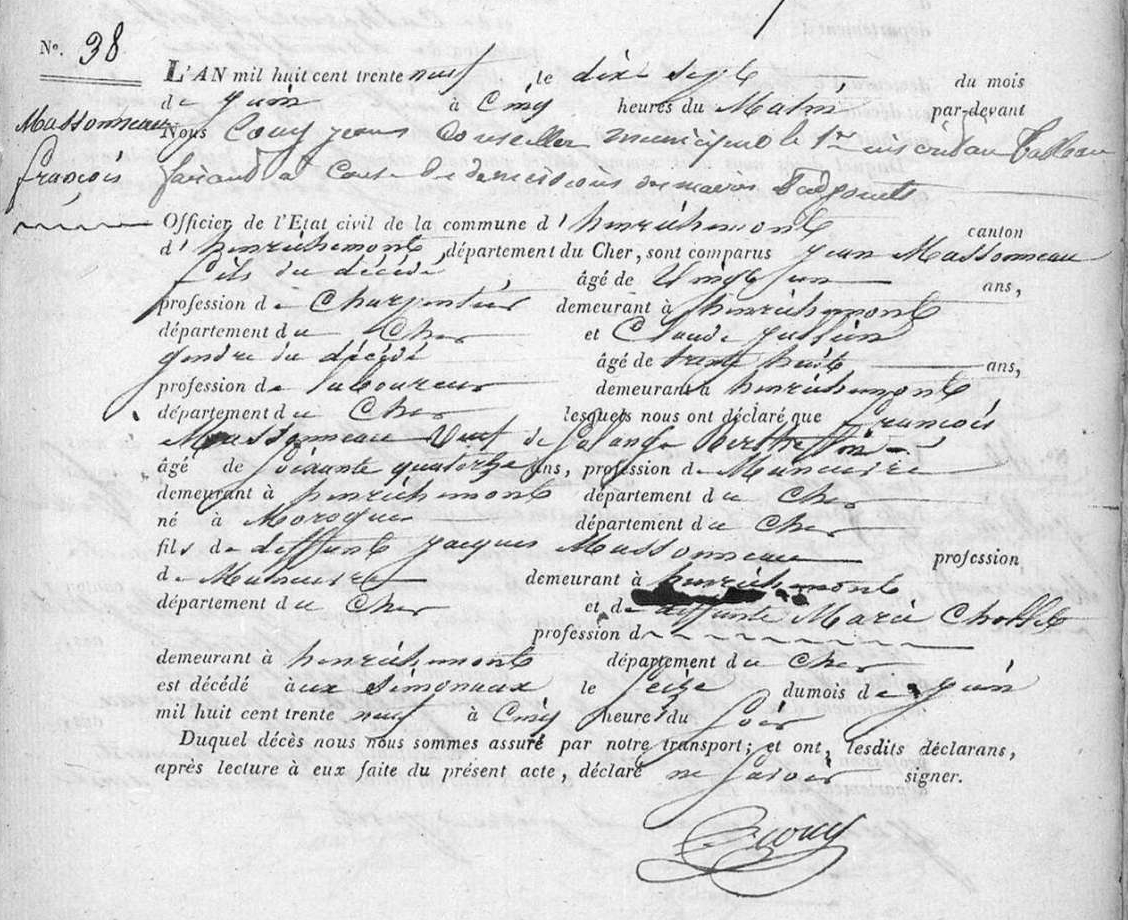 N°. 38
L'AN mil huit cent trente neuf, le dix sept du mois
de juin à Cinq heures du Matin par-devant
Massonneau
Nous Couy jean Conseiller municipal le 1er inscrit au tableau
françois
faisant a Cause de demissions des maires & adjoints
Officier de l'Etat civil de la commune d'henrichemont canton
d'henrichemont, département du Cher, sont comparus jean Massonneau
fils du décédé âgé de Vingt un ans,
profession de Charpentier demeurant à henrichemont
département du Cher et Claude jullien
gendre du décédé âgé de trente huit ans,
profession de laboureur demeurant à henrichemont
département du Cher lesquels nous ont déclaré que françois
Massonneau Veuf de Solange
âgé de soixante quatorze ans, profession de Manœuvre
demeurant à henrichemont département du Cher
né à Morogues département du Cher
fils de deffunt jacques Massonneau profession
de Manœuvre demeurant à henrichemont
département du Cher et de deffunte Marie
profession d
demeurant à henrichemont département du Cher
est décédé aux simonaux le seize du mois de juin
mil huit cent trente neuf à Cinq heure du soir
Duquel décès nous nous sommes assuré par notre transport; et ont, lesdits déclarans,
après lecture à eux faite du présent acte, déclaré ne savoir signer.
Couy